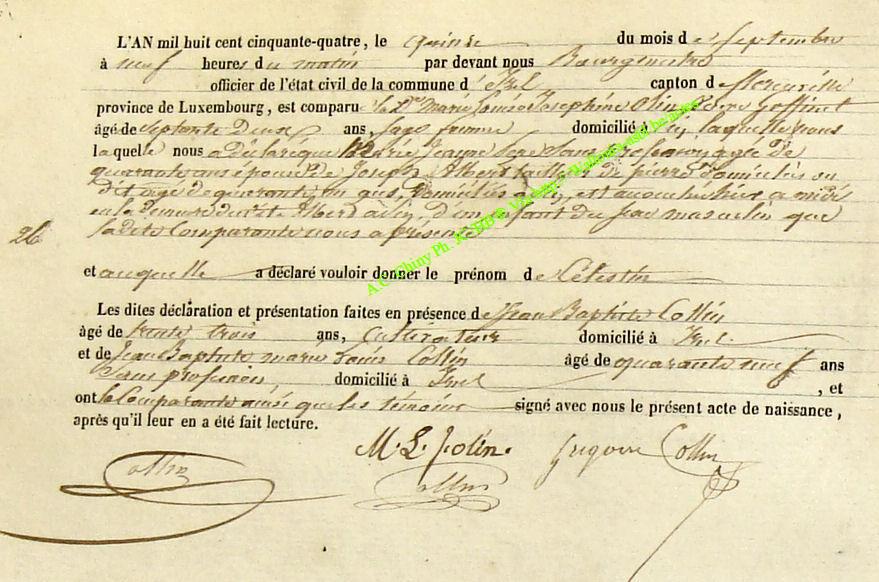 L'AN mil huit cent cinquante-quatre, le quinze du mois de Septembre
à neuf heures du matin par devant nous Bourgmestre
officier de l'état civil de la commune d'Izel canton de
province de Luxembourg, est comparu la Marie Josephine
âgé de septante deux ans, sage femme domicilié à Izel, laquelle nous
laquelle nous a déclaré que Marie Jeanne sans profession agée de
quarante ans épouse de Joseph Albert tailleur de pierre domiciliés
dit agé de quarante un ans, domiciliés à Izel, est accouchée hier a midi
en la demeure dudit Albert à Izel, d'un enfant du sexe masculin que
ladite Comparante nous a présenté
26
et auquelle a déclaré vouloir donner le prénom de Célestin
Les dites déclaration et présentation faites en présence de Jean Baptiste Collin
âgé de trente trois ans, cultivateur domicilié à Izel
et de Jean Baptiste marie Louis Collin âgé de quarante neuf ans
Sans profession, domicilié à Izel , et
ont la Comparante ainsi que les témoins signé avec nous le présent acte de naissance,
après qu'il leur en a été fait lecture.
M. L. J. olin. Grégoire Collin
Collin Collin